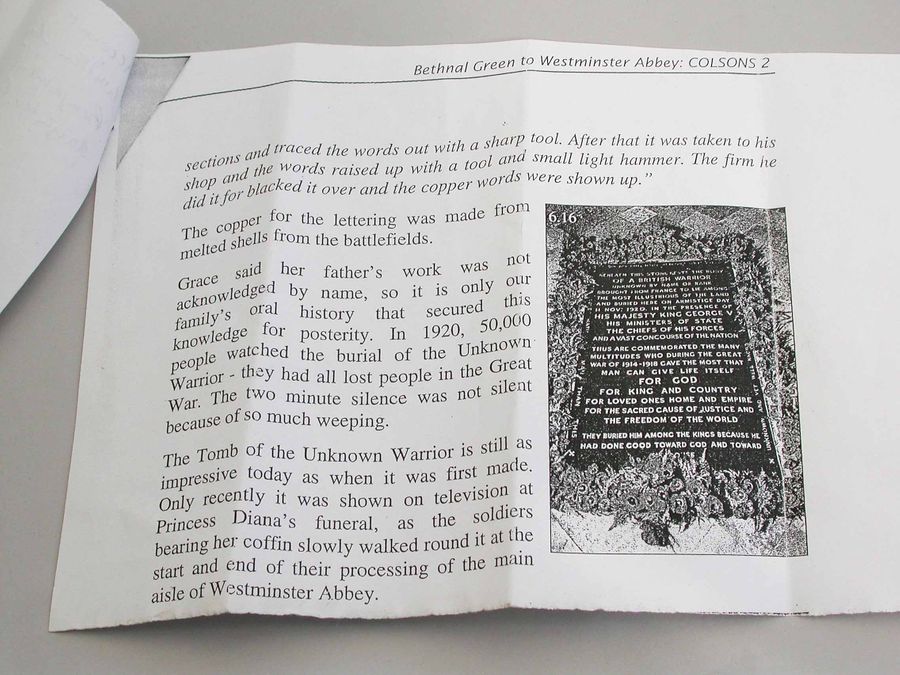 Bethnal Green to Westminster Abbey: COLSONS 2
sections and traced the words out with a sharp tool. After that it was taken to his
shop and the words raised up with a tool and small light hammer. The firm he
did it for blacked it over and the copper words were shown up.”
The copper for the lettering was made from
melted shells from the battlefields.
Grace said her father’s work was not
acknowledged by name, so it is only our
family’s oral history that secured this
knowledge for posterity. In 1920, 50,000
people watched the burial of the Unknown
Warrior - they had all lost people in the Great
War. The two minute silence was not silent
because of so much weeping.
The Tomb of the Unknown Warrior is still as
impressive today as when it was first made.
Only recently it was shown on television at
Princess Diana’s funeral, as the soldiers
bearing her coffin slowly walked round it at the
start and end of their processing of the main
aisle of Westminster Abbey.
6.16
BENEATH THIS STONE RESTS THE BODY
OF A BRITISH WARRIOR
UNKNOWN BY NAME OR RANK
BROUGHT FROM FRANCE TO LIE AMONG
THE MOST ILLUSTRIOUS OF THE LAND
AND BURIED HERE ON ARMISTICE DAY
11 NOV: 1920, IN THE PRESENCE OF
HIS MAJESTY KING GEORGE V
HIS MINISTERS OF STATE
THE CHIEFS OF HIS FORCES
AND A VAST CONCOURSE OF THE NATION
THUS ARE COMMEMORATED THE MANY
MULTITUDES WHO DURING THE GREAT
WAR OF 1914-1918 GAVE THE MOST THAT
MAN CAN GIVE LIFE ITSELF
FOR GOD
FOR KING AND COUNTRY
FOR LOVED ONES HOME AND EMPIRE
FOR THE SACRED CAUSE OF JUSTICE AND
THE FREEDOM OF THE WORLD
THEY BURIED HIM AMONG THE KINGS BECAUSE HE
HAD DONE GOOD TOWARD GOD AND TOWARD